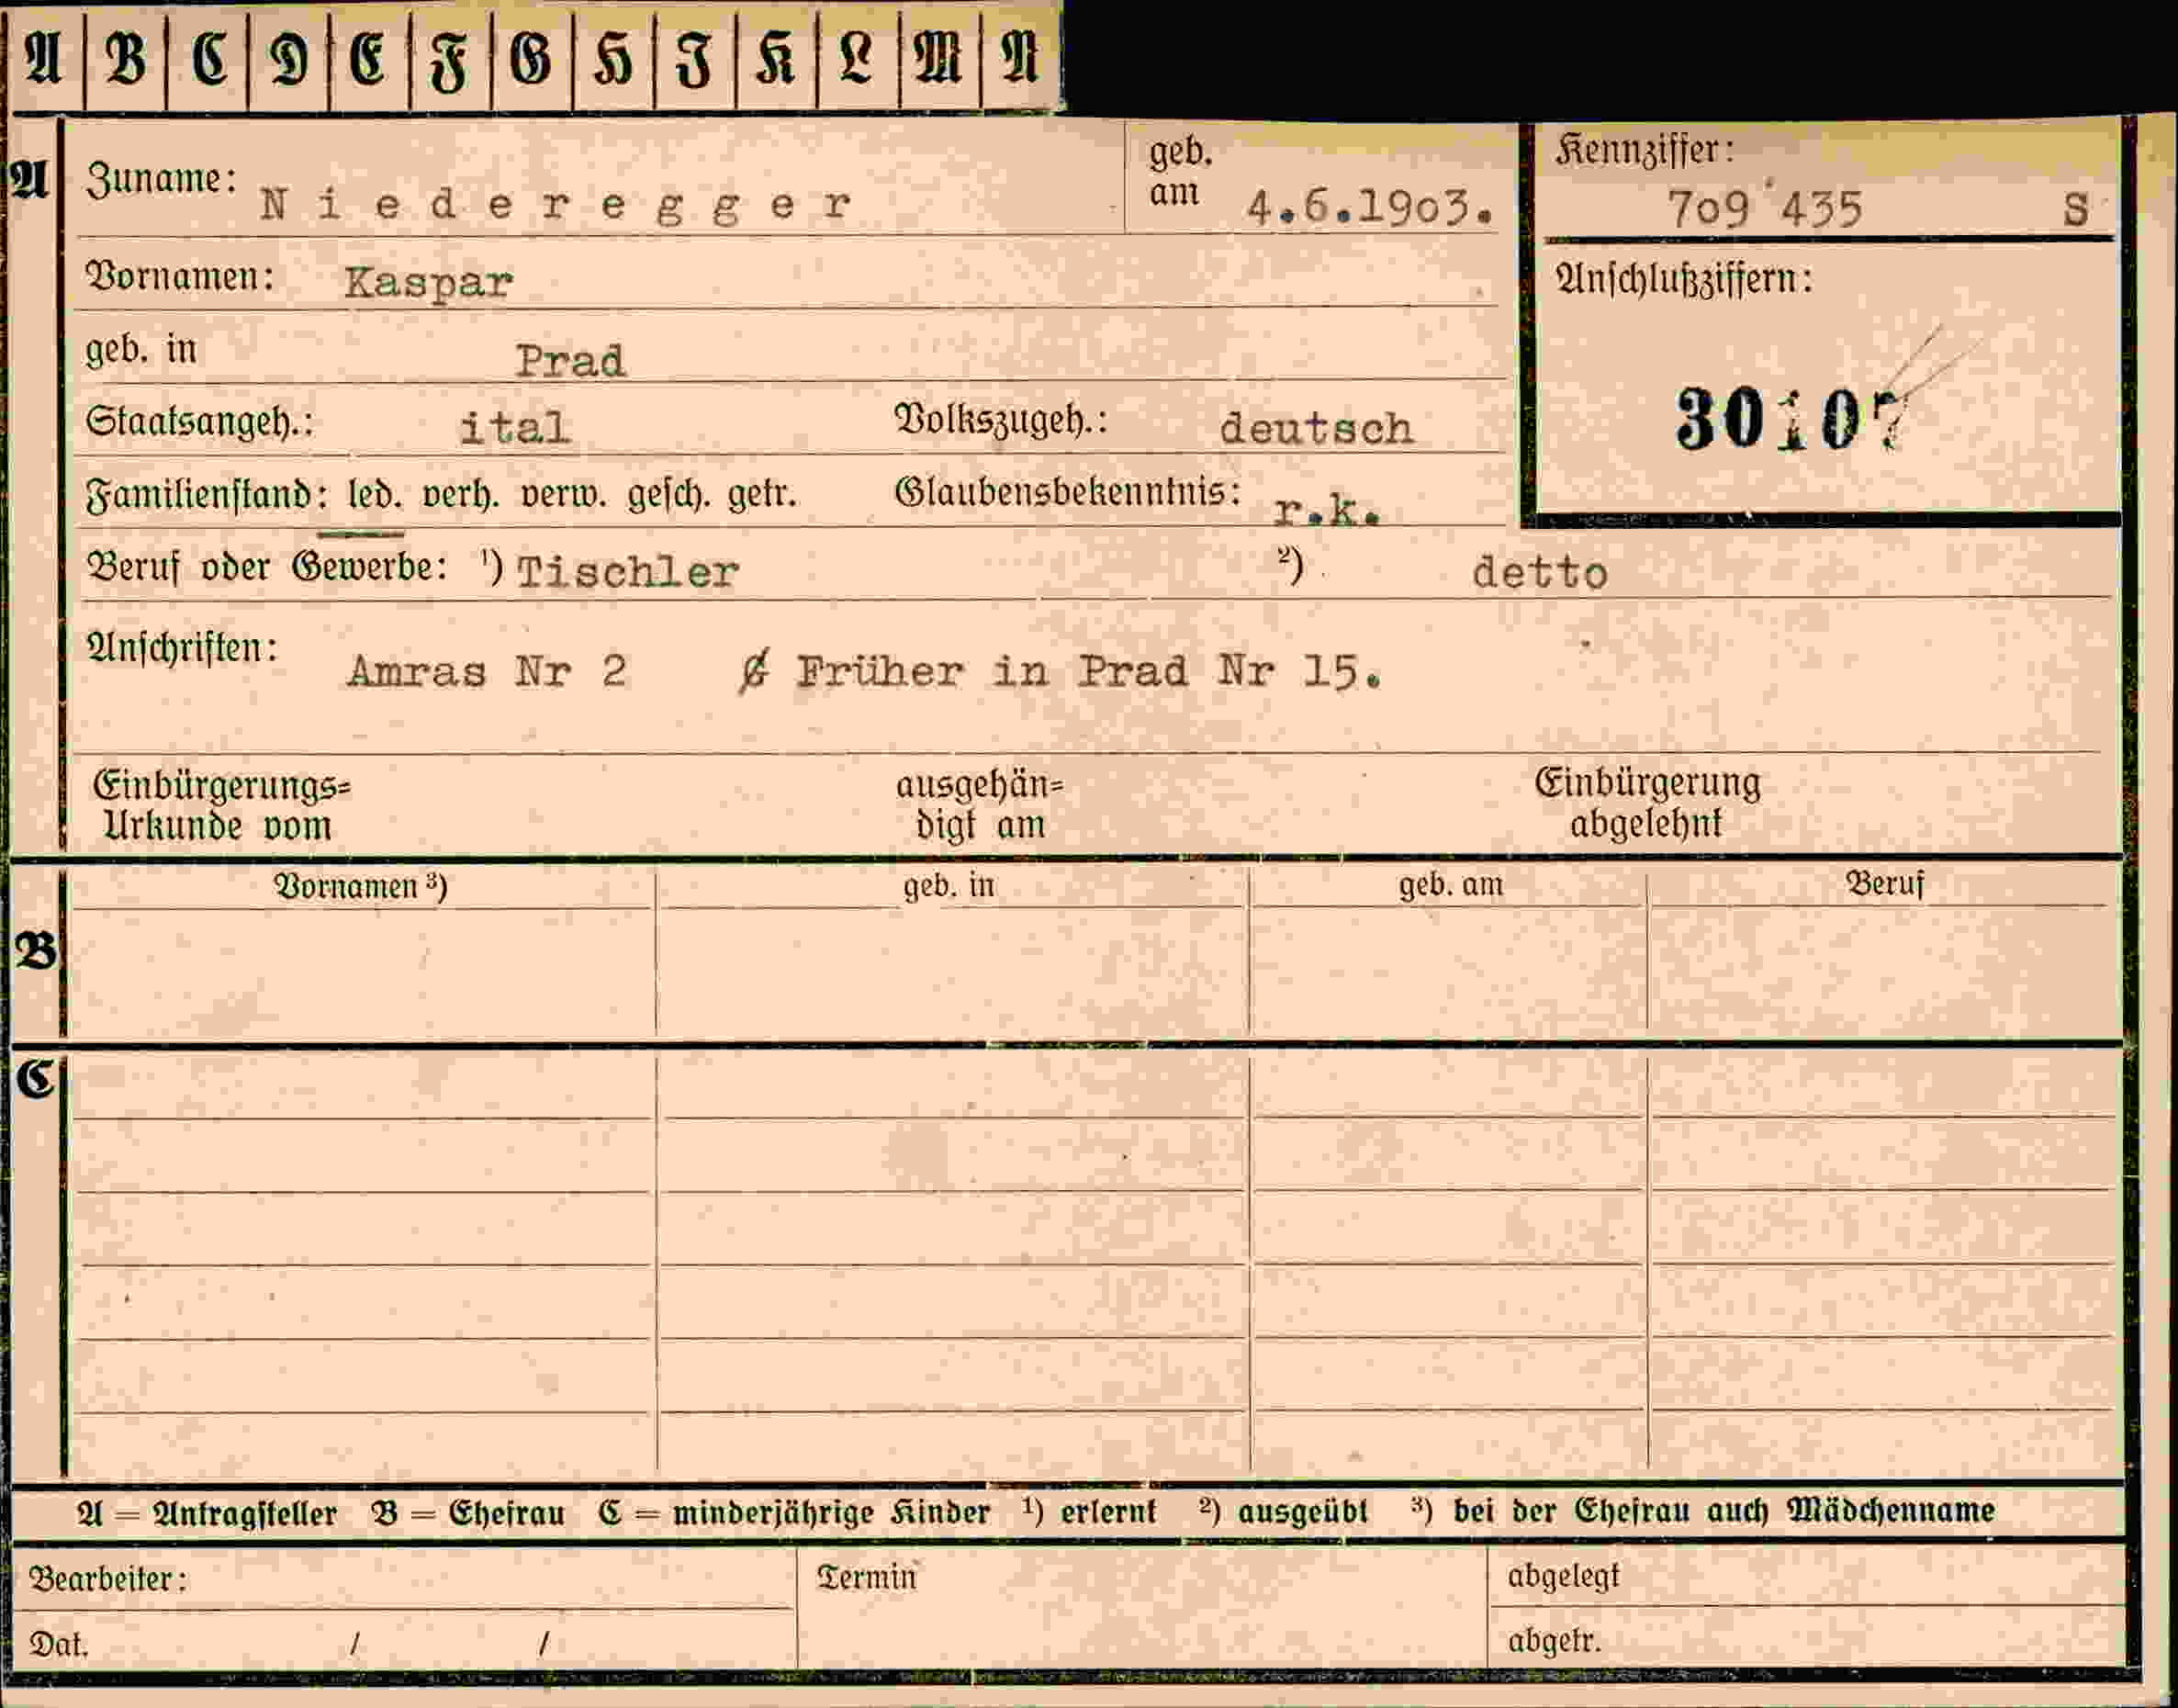 A B C D E F G H I K L M N
A Zuname: Niederegger geb. am 4.6.1903. Kennziffer: 709 435 S
Vornamen: Kaspar Anschlußziffern:
geb. in Prad
30107
Staatsangeh.: ital Volkszugeh.: deutsch
Familienstand: led. verh. verw. gesch. getr. Glaubensbekenntnis: r.k.
Beruf oder Gewerbe: ¹) Tischler ²) detto
Anschriften: Amras Nr 2 Früher in Prad Nr 15.
Einbürgerungs= ausgehän= Einbürgerung
Urkunde vom digt am abgelehnt
Vornamen ³) geb. in geb. am Beruf
B
C
A = Antragsteller B = Ehefrau C = minderjährige Kinder ¹) erlernt ²) ausgeübt ³) bei der Ehefrau auch Mädchenname
Bearbeiter: Termin abgelegt
Dat. / / abgetr.